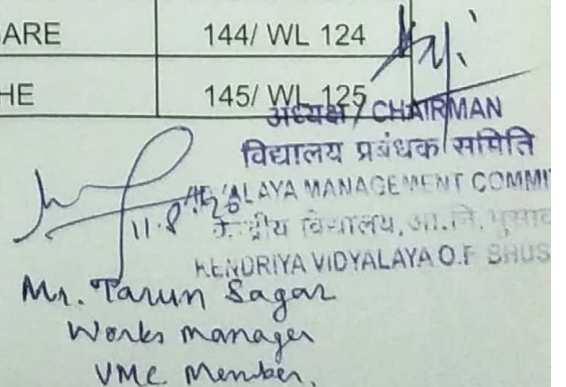 ARE 144/ WL 124
HE 145/ WL 125
अध्यक्ष / CHAIRMAN
विद्यालय प्रबंधक समिति
ALAYA MANAGEMENT COMMI
11.8 केन्द्रीय विद्यालय, आ.नि. भुसाव
KENDRIYA VIDYALAYA O.F BHUS
Mr. Tarun Sagar
Works manager
VMC Member.